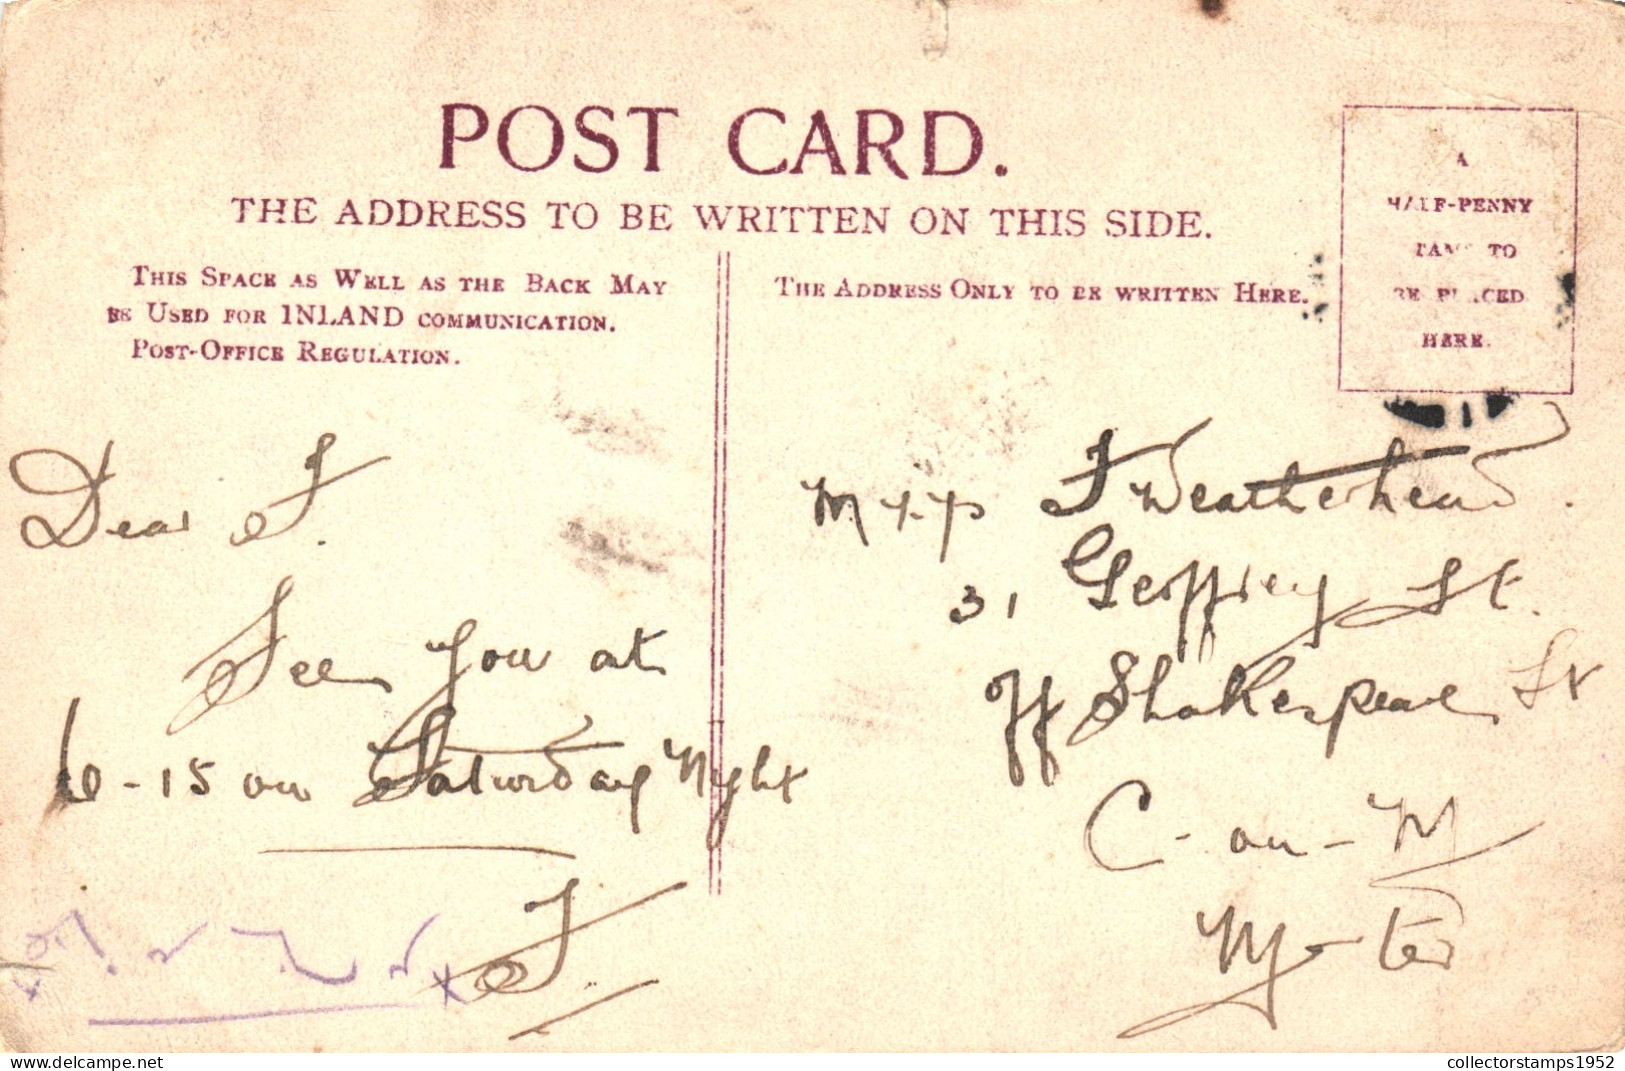 POST CARD.
THE ADDRESS TO BE WRITTEN ON THIS SIDE.
THIS SPACE AS WELL AS THE BACK MAY
BE USED FOR INLAND COMMUNICATION.
POST-OFFICE REGULATION.
THE ADDRESS ONLY TO BE WRITTEN HERE.
A
HALF-PENNY
STAMP TO
BE PLACED
HERE.
Dear F.
See you at
6-15 on Saturday Night
F.
F Weatherhead.
31 Geoffrey St.
off Shakespeare St
C-on-M
M-ter
&Delcampe.net
collectorstamps1952